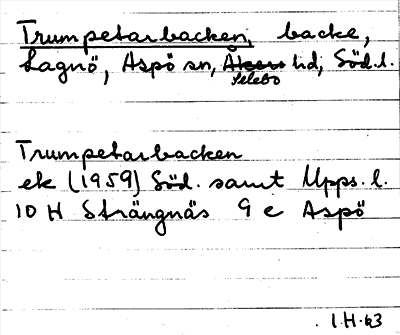 Trumpetarbacken, backe,
Lagnö, Aspö sn, Åkers hd, Söd.l.
Selebo
Trumpetarbacken
ek (1959) Söd. samt Upps. l.
10 H Strängnäs 9 c Aspö
I.H.63